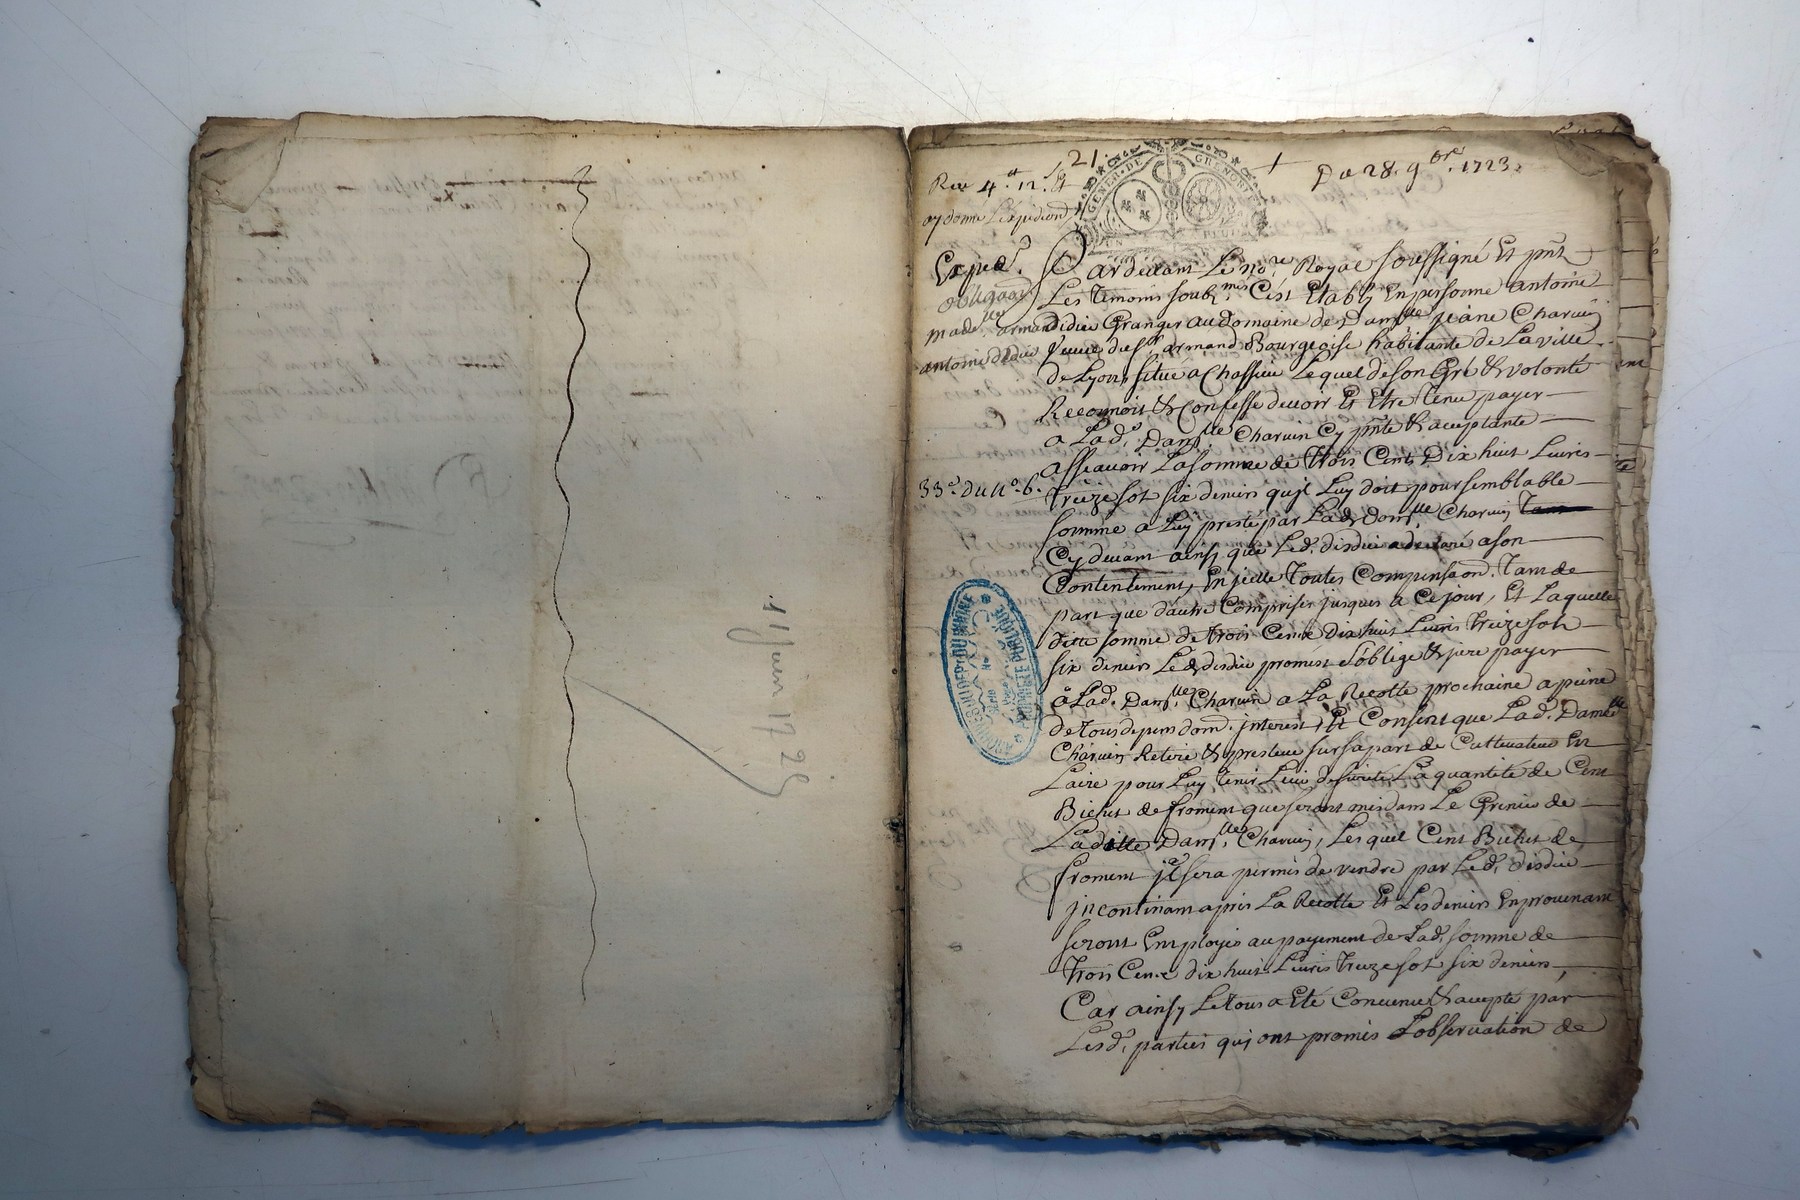 11 Juin 1725
21.
Du 28. 9bre. 1723.
GENER. DE GRENOBLE
Expéd.
33e. du n°. 6.
antoine didier
ARCHIVES DU DÉPt DU RHÔNE
PROPRIÉTÉ PUBLIQUE
Pardevant Le nore. Royal Soussigné Et pnt
Les Temoins soubz. Cest Etably En personne antoine
didier Granger au Domaine de Damlle jeane Charuin
Veuue du Sr armand Bourgeoise habitante de La ville
de Lyon situé a Chassieu Lequel de son Gré & volonté
Reconnoit & Confesse deuoir Et Etre Tenu payer
a Lad. Damlle. Charuin Cy pnte & aceptante
assauoir La somme de Trois Cents Dix huit Liures
Treize sol six deniers qu'il Luy doit pour semblable
somme a Luy presté par Lad. Damlle Charuin
Cy deuant ainsy que Led. didier a declaré a son
Contentement, En jcelle Toutes Compensaon. Tant de
part que d'autre Comprises jusques a Ce jour, Et Laquelle
ditte somme de trois Cent Dix huit Liures treize sols
six deniers Led. didier promest s'oblige & jure payer
a Lad. Damlle Charuin a La Recolte prochaine a peine
de tous depens dom. jnterest, Et Consent que Lad. Damlle
Charuin Retire & preleue sur sa part de Cultiuateur En
Laire pour Luy Tenir Lieu de sureté La quantité de Cent
Bichet de froment que seront mis dans Le Grenier de
Laditte Damlle. Charuin, Lesquel Cent Bichet de
froment jl sera permis de vendre par Led. didier
jncontinant apres La Recolte Et Les deniers En prouenant
seront Employés au payement de Lad. somme de
trois Cent dix huit Liures treize sol six deniers,
Car ainsy Le tous a Eté Conuenu & accepté par
Lesd. parties qui ont promis L'obseruation de